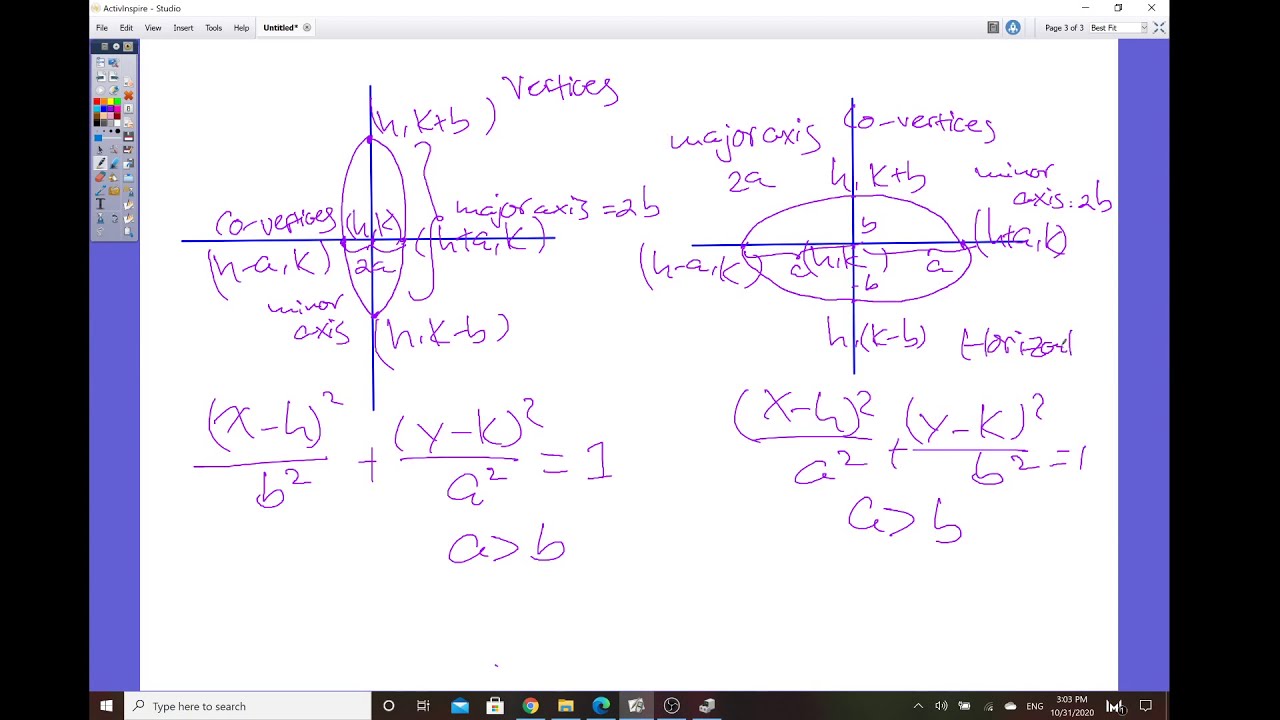 ActivInspire - Studio
File Edit View Insert Tools Help Untitled* Page 3 of 3 Best Fit
Vertices
(h, k+b)
co-vertices
(h, k)
major axis = 2b
(h-a, k)
2a
(h+a, k)
minor
axis
(h, k-b)
(x-h)² / b² + (y-k)² / a² = 1
a > b
major axis
2a
co-vertices
h, k+b
minor
axis: 2b
b
(h-a, k)
a
(h, k)
a
(h+a, k)
b
h, (k-b)
(x-h)² / a² + (y-k)² / b² = 1
a > b
Type here to search
ENG
3:03 PM
10/31/2020